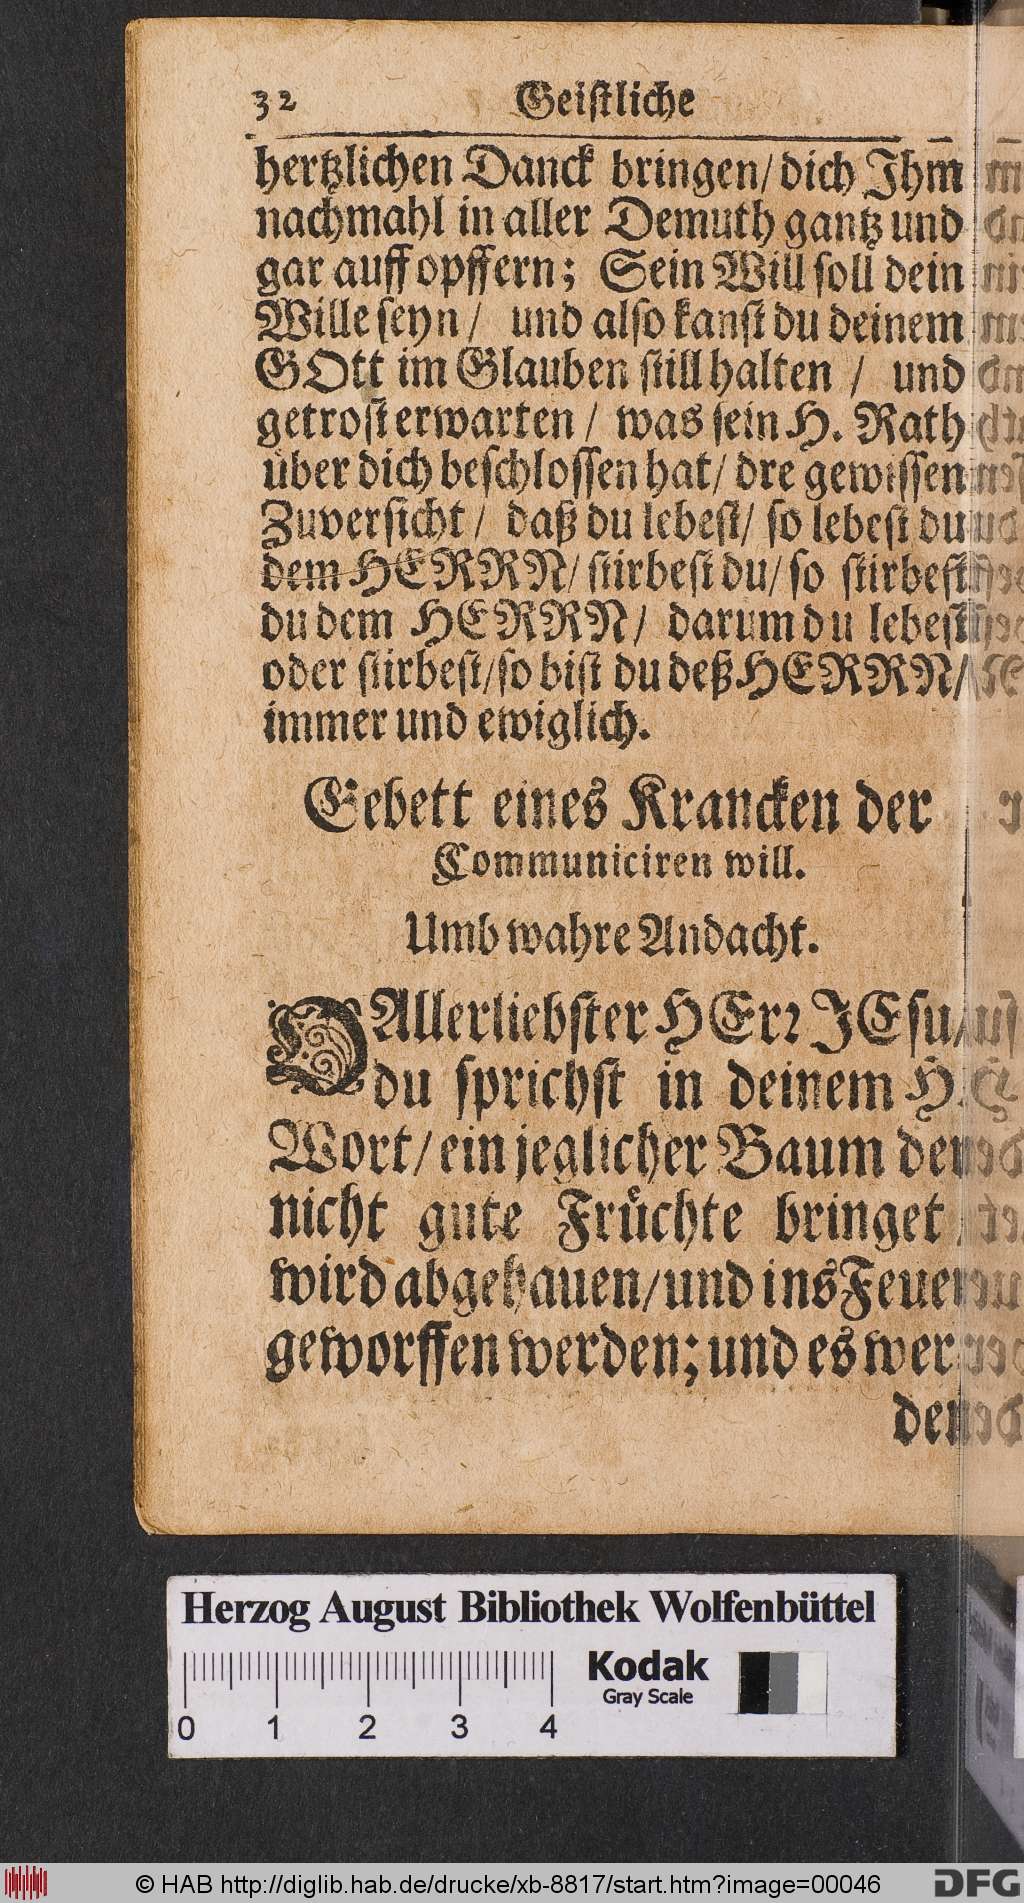 32 Geistliche
hertzlichen Danck bringen/ dich Ihm
nachmahl in aller Demuth gantz und
gar auff opffern; Sein Will soll dein
Wille seyn/ und also kanst du deinem
GOtt im Glauben still halten / und
getrost erwarten/ was sein H. Rath
über dich beschlossen hat/ dre gewissen
Zuversicht/ daß du lebest/ so lebest du
dem HERRN/ stirbest du/ so stirbest
du dem HERRN/ darum du lebest
oder stirbest/ so bist du deß HERRN/
immer und ewiglich.
Gebett eines Krancken der
Communiciren will.
Umb wahre Andacht.
O Allerliebster HErr JEsu/
du sprichst in deinem H.
Wort/ ein jeglicher Baum der
nicht gute Früchte bringet /
wird abgehauen/ und ins Feuer
geworffen werden; und es wer
den
Herzog August Bibliothek Wolfenbüttel
Kodak
Gray Scale
0 1 2 3 4
© HAB http://diglib.hab.de/drucke/xb-8817/start.htm?image=00046
DFG